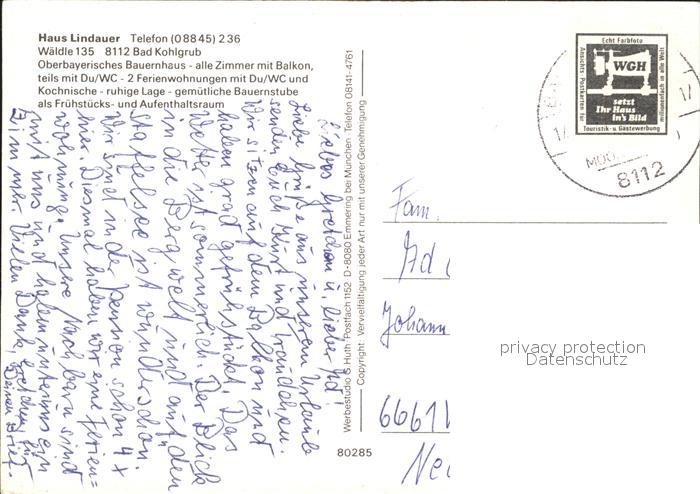 Haus Lindauer Telefon (0 88 45) 2 36
Wäldle 135 8112 Bad Kohlgrub
Oberbayerisches Bauernhaus - alle Zimmer mit Balkon,
teils mit Du/WC - 2 Ferienwohnungen mit Du/WC und
Kochnische - ruhige Lage - gemütliche Bauernstube
als Frühstücks- und Aufenthaltsraum
Liebes Gretchen u. lieber Ad!
Liebe Grüße aus unserem Urlaub
senden Euch Kurt und Traudchen.
Wir sitzen auf dem Balkon und
haben grad gefrühstückt. Das
Wetter ist sommerlich. Der Blick
in die Bergwelt und auf den
Staffelsee ist wunderschön.
Wir sind in der Pension schon 4 x
hier. Diesmal haben wir eine Ferien=
wohnung. Unsere Nachbarn sind
mit uns und haben unter uns ein
Zimmer. Vielen Dank, Gretchen, für
Deinen Brief.
Werbestudio G. Huth · Postfach 1152 · D-8080 Emmering bei München · Telefon 08141-4761
Copyright: Vervielfältigung jeder Art nur mit unserer Genehmigung
80285
Echt Farbfoto
Ansichts-Postkarten für
WGH
millionenfach in alle Welt
setzt
Ihr Haus
in's Bild
Touristik- u. Gästewerbung
8112
Fam.
Ad
Johann
6661
privacy protection
Datenschutz